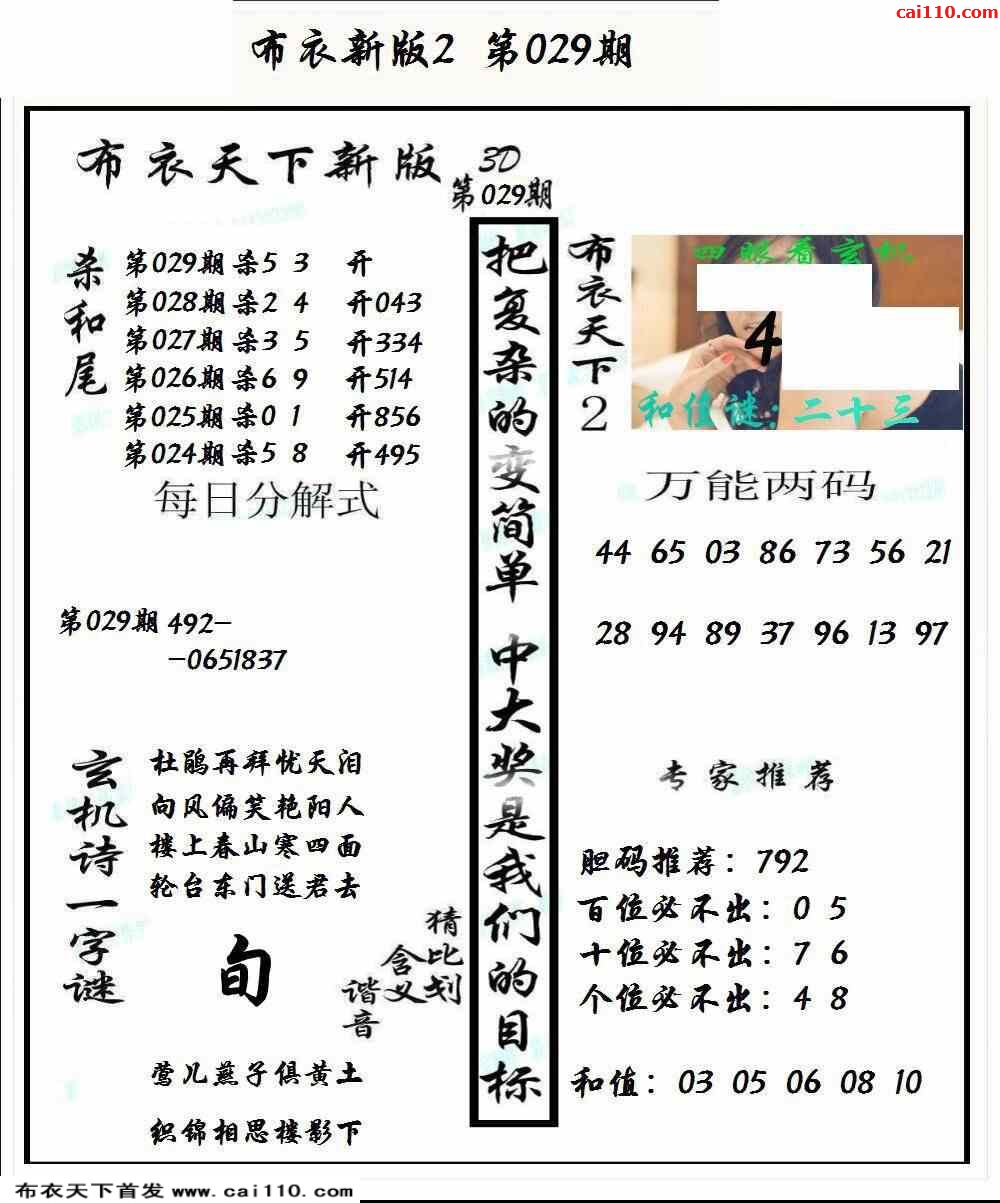 cai110.com
布衣新版2 第029期
布衣天下新版
3D
第029期
杀和尾
第029期杀5 3 开
第028期杀2 4 开043
第027期杀3 5 开334
第026期杀6 9 开514
第025期杀0 1 开856
第024期杀5 8 开495
每日分解式
第029期 492-
-0651837
玄机诗一字谜
杜鹃再拜忧天泪
向风偏笑艳阳人
楼上春山寒四面
轮台东门送君去
旬
猜比划
含义
谐音
莺儿燕子俱黄土
织锦相思楼影下
把复杂的变简单 中大奖是我们的目标
布衣天下2
四眼看玄机
4
和值谜:二十三
万能两码
44 65 03 86 73 56 21
28 94 89 37 96 13 97
专家推荐
胆码推荐:792
百位必不出:0 5
十位必不出:7 6
个位必不出:4 8
和值:03 05 06 08 10
布衣天下首发 www.cai110.com